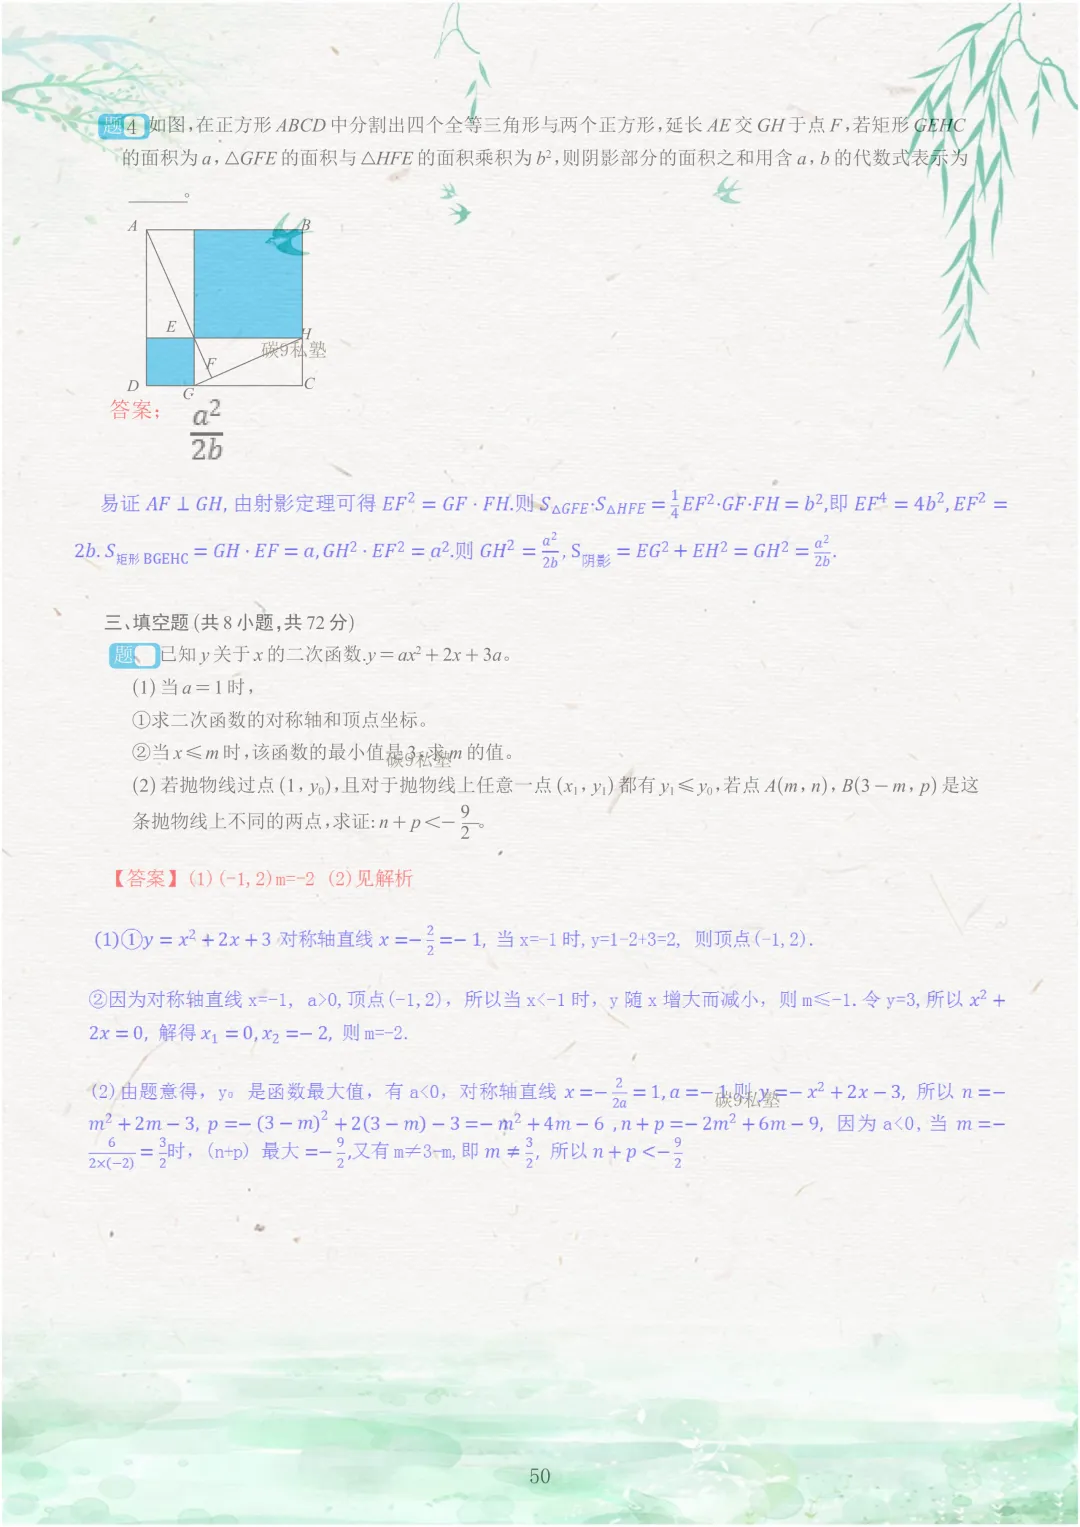 题4 如图,在正方形 ABCD 中分割出四个全等三角形与两个正方形,延长 AE 交 GH 于点 F,若矩形 GEHC
的面积为 a,△GFE 的面积与 △HFE 的面积乘积为 b²,则阴影部分的面积之和用含 a, b 的代数式表示为
______。
A B
E H
碳9私塾
F
D G C
答案; a²/2b
易证 AF ⊥ GH, 由射影定理可得 EF² = GF · FH.则 S△GFE·S△HFE = 1/4 EF²·GF·FH = b²,即 EF⁴ = 4b², EF² =
2b. S矩形 BGEHC = GH · EF = a, GH² · EF² = a².则 GH² = a²/2b , S阴影 = EG² + EH² = GH² = a²/2b.
三、填空题 (共 8 小题,共 72 分)
题、 已知 y 关于 x 的二次函数.y = ax² + 2x + 3a。
(1) 当 a = 1 时,
①求二次函数的对称轴和顶点坐标。
②当 x ≤ m 时,该函数的最小值是 3,求 m 的值。
碳9私塾
(2) 若抛物线过点 (1, y₀),且对于抛物线上任意一点 (x₁, y₁) 都有 y₁ ≤ y₀,若点 A(m, n), B(3 − m, p) 是这
条抛物线上不同的两点,求证: n + p < − 9/2。
【答案】(1)(-1,2)m=-2 (2)见解析
(1)①y = x² + 2x + 3 对称轴直线 x = − 2/2 = − 1, 当 x=-1 时,y=1-2+3=2, 则顶点(-1,2).
②因为对称轴直线 x=-1, a>0,顶点(-1,2), 所以当 x<-1 时, y 随 x 增大而减小, 则 m≤-1.令 y=3,所以 x² +
2x = 0, 解得 x₁ = 0, x₂ = − 2, 则 m=-2.
(2)由题意得, y₀ 是函数最大值, 有 a<0, 对称轴直线 x = − 2/2a = 1, a = − 1,则 y = − x² + 2x − 3, 所以 n = −
碳9私塾
m² + 2m − 3, p = − (3 − m)² + 2(3 − m) − 3 = − m² + 4m − 6 , n + p = − 2m² + 6m − 9, 因为 a<0, 当 m = −
6/2×(−2) = 3/2 时, (n+p) 最大 = − 9/2 ,又有 m≠3-m,即 m ≠ 3/2, 所以 n + p < − 9/2
50